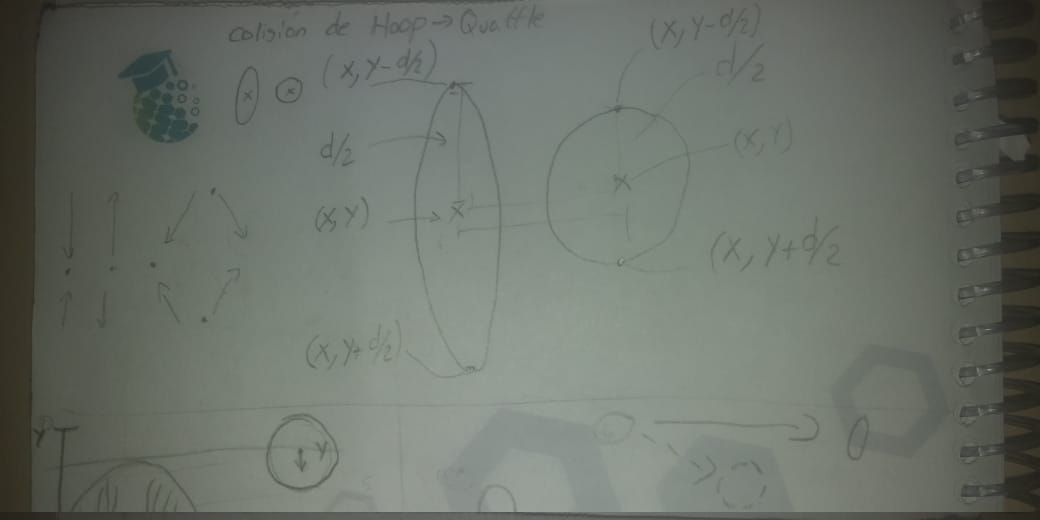 Colisión de Hoop → Quaffle
(X, Y-d/2)
d/2
(X, Y)
(X, Y+d/2)
(X, Y-d/2)
d/2
(X, Y)
(X, Y+d/2
Y
Y